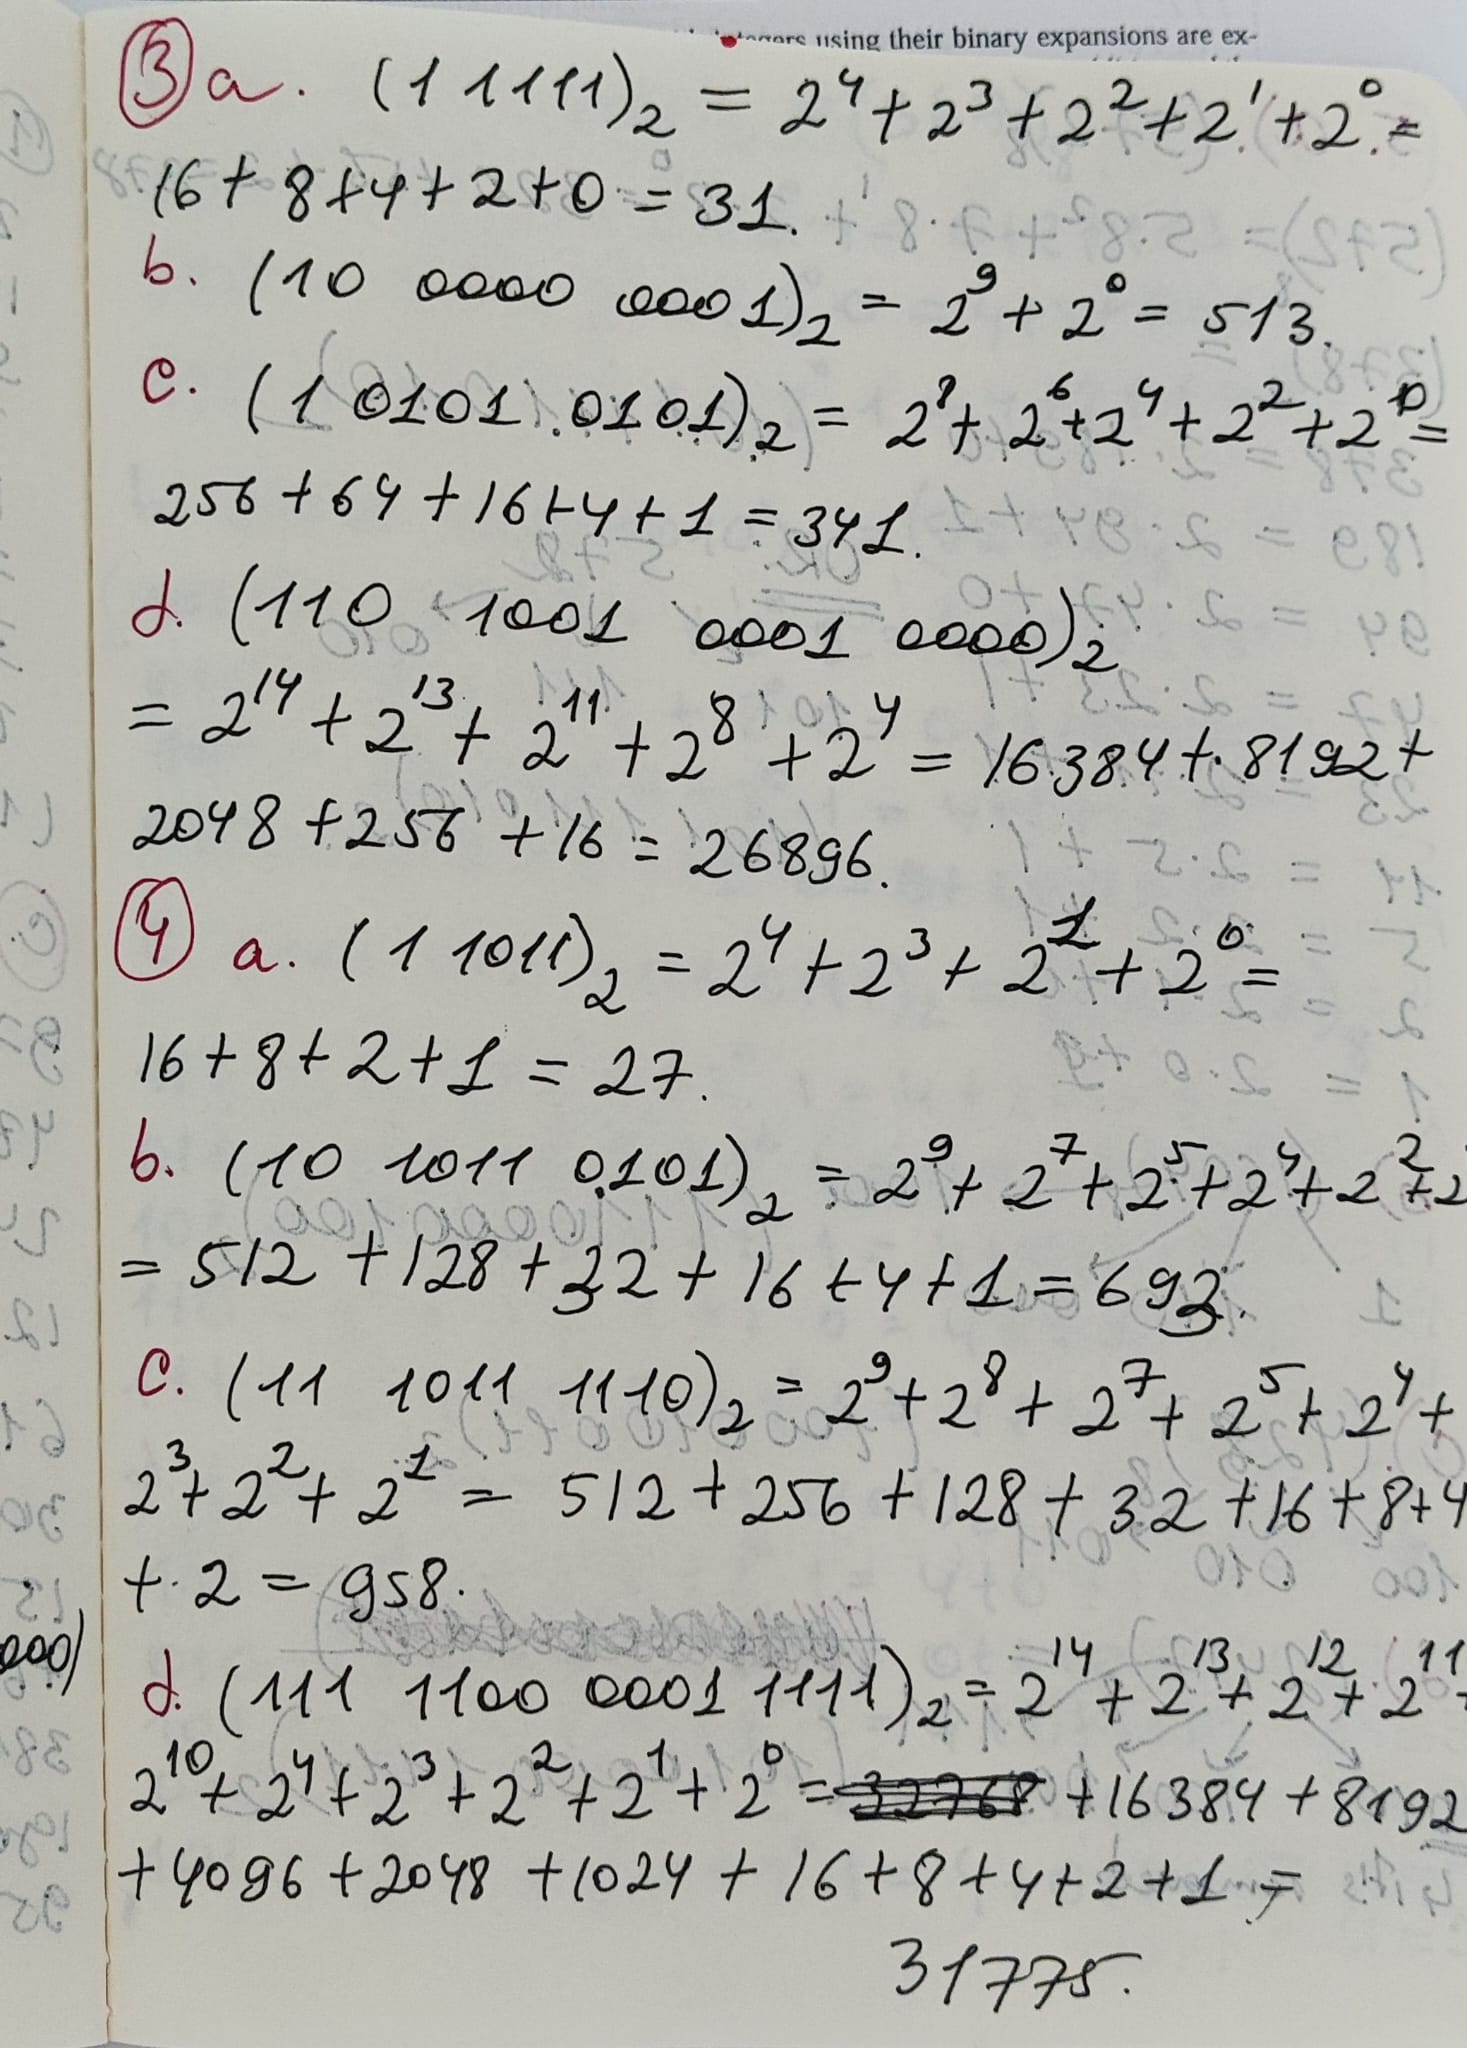 integers using their binary expansions are ex-
③ a. (1 1111)₂ = 2⁴ + 2³ + 2² + 2¹ + 2⁰ =
16 + 8 + 4 + 2 + 0 = 31.
b. (10 0000 0001)₂ = 2⁹ + 2⁰ = 513.
c. (1 0101 0101)₂ = 2⁸ + 2⁶ + 2⁴ + 2² + 2⁰ =
256 + 64 + 16 + 4 + 1 = 341.
d. (110 1001 0001 0000)₂
= 2¹⁴ + 2¹³ + 2¹¹ + 2⁸ + 2⁴ = 16384 + 8192 +
2048 + 256 + 16 = 26896.
④ a. (1 1011)₂ = 2⁴ + 2³ + 2¹ + 2⁰ =
16 + 8 + 2 + 1 = 27.
b. (10 1011 0101)₂ = 2⁹ + 2⁷ + 2⁵ + 2⁴ + 2² + 2
= 512 + 128 + 32 + 16 + 4 + 1 = 693.
c. (11 1011 1110)₂ = 2⁹ + 2⁸ + 2⁷ + 2⁵ + 2⁴ +
2³ + 2² + 2¹ = 512 + 256 + 128 + 32 + 16 + 8 + 4
+ 2 = 958.
000)
d. (111 1100 0001 1111)₂ = 2¹⁴ + 2¹³ + 2¹² + 2¹¹ +
2¹⁰ + 2⁴ + 2³ + 2² + 2¹ + 2⁰ = 32768 + 16384 + 8192
+ 4096 + 2048 + 1024 + 16 + 8 + 4 + 2 + 1 =
31775.